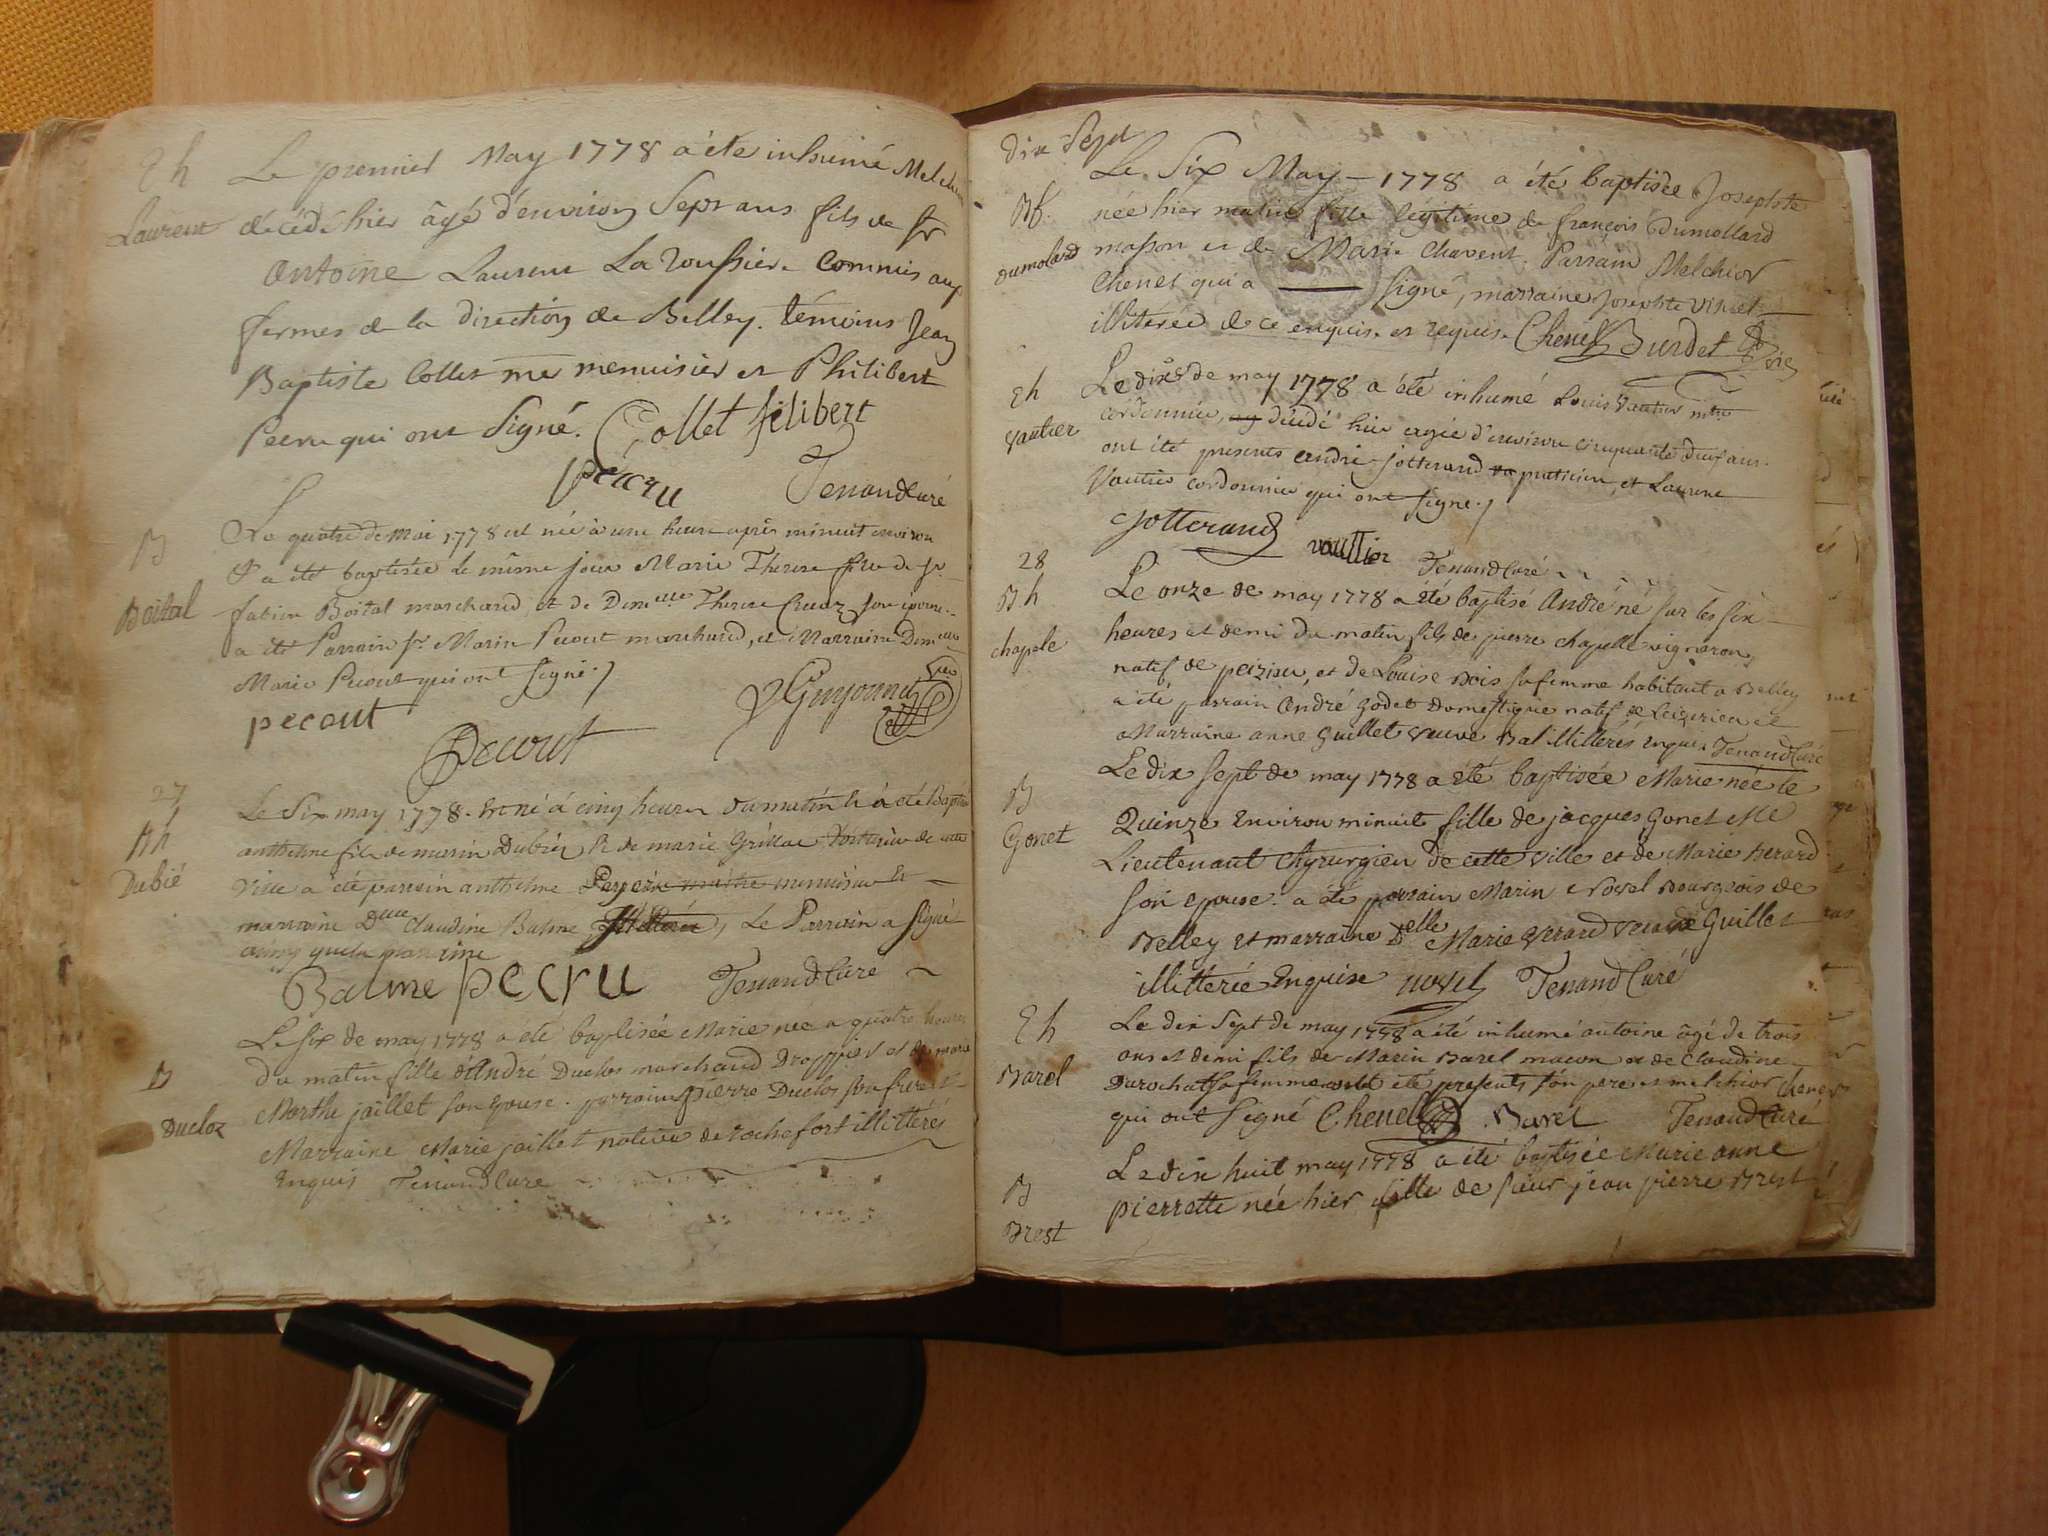 Eh Le premier May 1778 a été inhumé Melchior
Laurent décédé hier âgé d'environ Sept ans fils de Sr
Antoine Laurent La Roussiere Commis aux
fermes de la direction de Belley. témoins Jean
Baptiste Collet me menuisier et Philibert
Pecru qui ont Signé. Collet filibert
pecru Tenand Curé
B Le quatre de Mai 1778 est née à une heure après minuit environ
Boital & a été baptisée le même jour Marie Therese fille de Sr
Boital marchand, et de Demlle Therese son épouse
a été Parrain Sr Marin Pecout marchand, et Marraine Demlle
Marie Pecout qui ont signé.
pecout Guyonnet
Decout
27
Bh Le Six may 1778. Est né à cinq heures du matin & a été Baptisé
Dubié anthelme fils de marin Dubiéz & de marie Grillat de cette
Ville a été parrain anthelme menuisier Et
marraine Dlle Claudine Balme, Le Parrain a signé
ainsy que la marraine
Balme pecru Tenand Curé
B Le Six de may 1778 a été baptisée Marie née a quatre heures
du matin fille d'André Duclos marchand Drappier et de marie
Ducloz Marthe jaillet son épouse. parrain pierre Duclos son frere &
Marraine Marie jaillet native de rochefort illittérés
Enquis Tenand Cure
dix Sept
Bf. Le Six May - 1778 a été baptisée Josephte
Dumolard née hier matin fille légitime de françois Dumollard
masson et de Marie Chavent. Parrain Melchior
Chenet qui a signé, marraine Josephte
illiterée de ce enquise et requise. Chenet Burdet
Eh Le dixe de may 1778 a été inhumé Louis Vautier mtre
Vautier cordonnier, décédé hier agée d'environ cinquante deux ans
ont été presents andré jotterand praticien, et Laurent
Vautier cordonnier qui ont signé.
Jotterand vautier Tenand Curé
28
Bh Le onze de may 1778 a été baptisé André né sur les six
chapele heures et demi du matin fils de pierre chapelle vigneron
natif de peizieu, et de Louise Bois sa femme habitant a Belley
a été parrain André Godet Domestique natif de et
Marraine anne Guillet veuve Bal illitterés Enquis Tenand Curé
B Le dix Sept de may 1778 a été baptisée Marie née le
Gonet Quinze Environ minuit fille de jacques Gonet Me
Lieutenant Chyrurgien de cette ville et de Marie Berard
son epouse. a été parrain Marin novel Bourgeois de
Belley et marraine Delle Marie verard veuve Guillet
illitterée Enquise novel Tenand Curé
Eh Le dix Sept de may 1778 a été inhumé antoine âgé de trois
Barel ans et demi fils de Marin Barel macon et de Claudine
Durochat sa femme ont été presents son pere et melchior Chenet
qui ont signé Chenet Barel Tenand Curé
B Le dix huit may 1778 a été baptisée Marie anne
Brest pierrette née hier fille de sieur jean pierre Brest